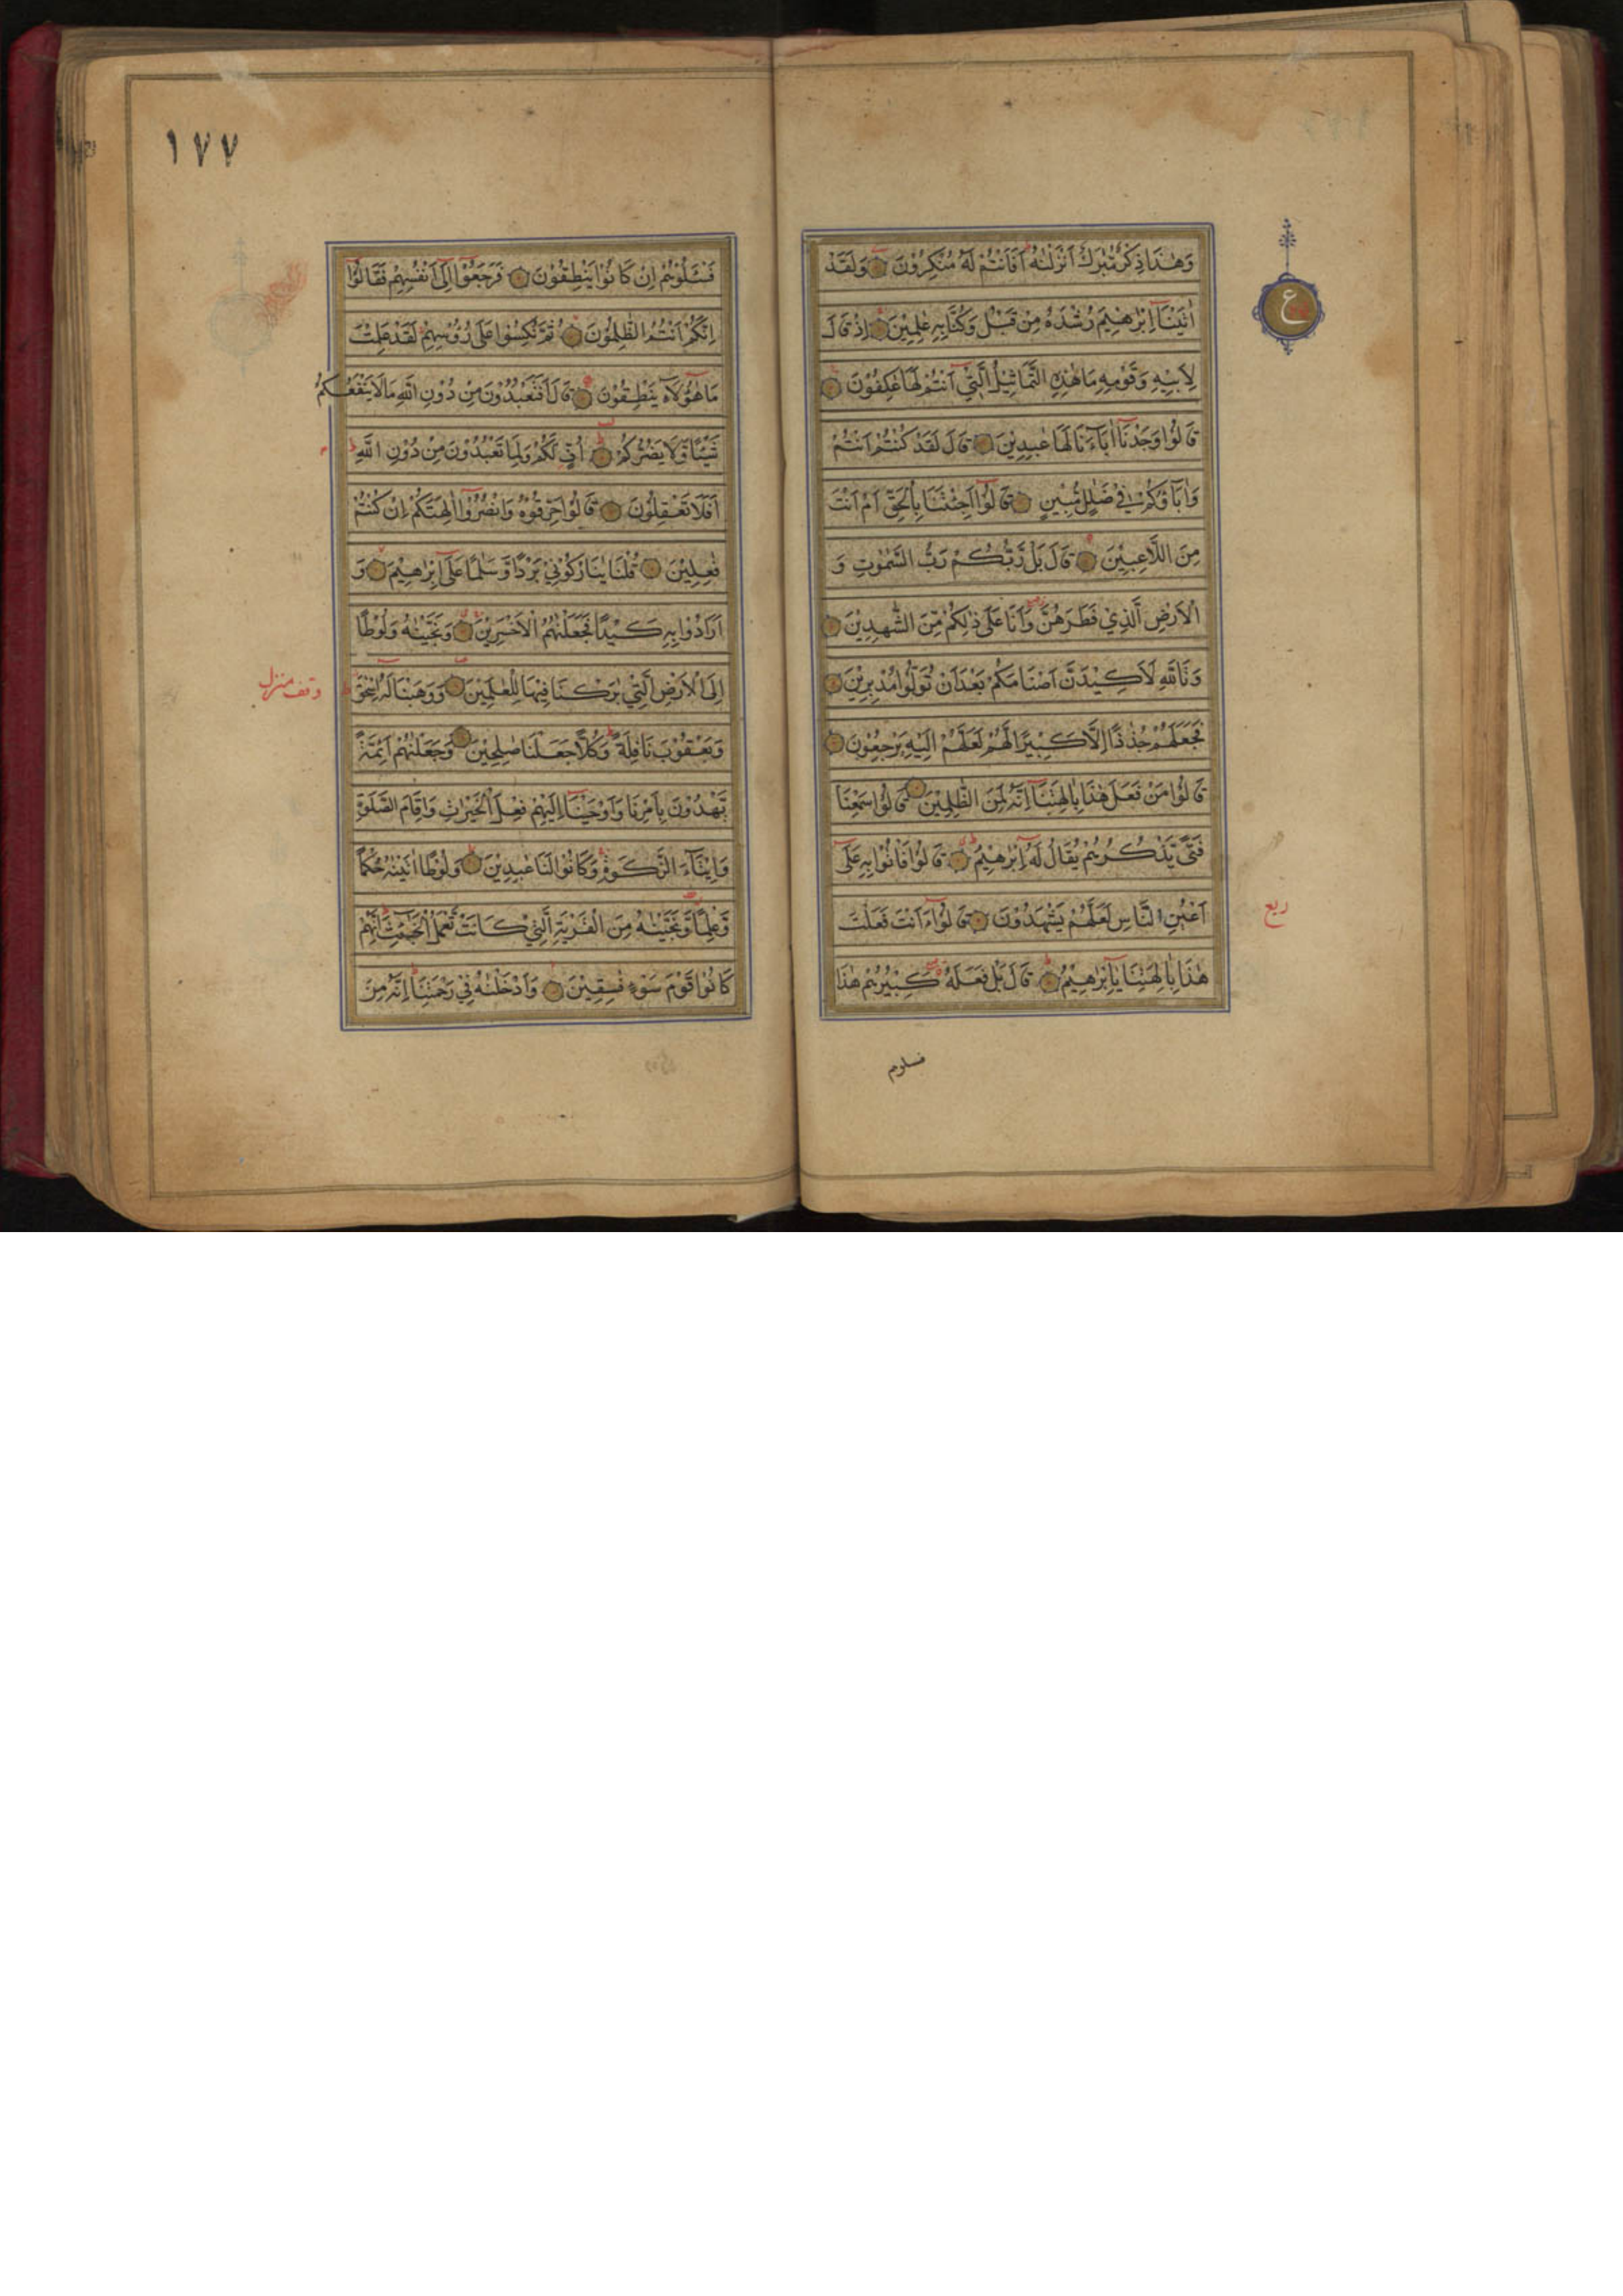 وَهٰذَا ذِكْرٌ مُبٰرَكٌ اَنْزَلْنٰهُ اَفَاَنْتُمْ لَهُ مُنْكِرُوْنَ وَلَقَدْ
اٰتَيْنَآ اِبْرٰهِيْمَ رُشْدَهُ مِنْ قَبْلُ وَكُنَّا بِهِ عٰلِمِيْنَ اِذْ قَالَ
لِاَبِيْهِ وَقَوْمِهِ مَا هٰذِهِ التَّمَاثِيْلُ الَّتِيْ اَنْتُمْ لَهَا عٰكِفُوْنَ
قَالُوْا وَجَدْنَآ اٰبَآءَنَا لَهَا عٰبِدِيْنَ قَالَ لَقَدْ كُنْتُمْ اَنْتُمْ
وَاٰبَآؤُكُمْ فِيْ ضَلٰلٍ مُّبِيْنٍ قَالُوْا اَجِئْتَنَا بِالْحَقِّ اَمْ اَنْتَ
مِنَ اللَّاعِبِيْنَ قَالَ بَلْ رَّبُّكُمْ رَبُّ السَّمٰوٰتِ وَ
الْاَرْضِ الَّذِيْ فَطَرَهُنَّ وَاَنَا عَلٰى ذٰلِكُمْ مِّنَ الشّٰهِدِيْنَ
وَتَاللّٰهِ لَاَكِيْدَنَّ اَصْنَامَكُمْ بَعْدَ اَنْ تُوَلُّوْا مُدْبِرِيْنَ
فَجَعَلَهُمْ جُذٰذًا اِلَّا كَبِيْرًا لَّهُمْ لَعَلَّهُمْ اِلَيْهِ يَرْجِعُوْنَ
قَالُوْا مَنْ فَعَلَ هٰذَا بِاٰلِهَتِنَآ اِنَّهُ لَمِنَ الظّٰلِمِيْنَ قَالُوْا سَمِعْنَا
فَتًى يَّذْكُرُهُمْ يُقَالُ لَهُ اِبْرٰهِيْمُ قَالُوْا فَاْتُوْا بِهِ عَلٰٓى
اَعْيُنِ النَّاسِ لَعَلَّهُمْ يَشْهَدُوْنَ قَالُوْا ءَاَنْتَ فَعَلْتَ
هٰذَا بِاٰلِهَتِنَا يَآ اِبْرٰهِيْمُ قَالَ بَلْ فَعَلَهُ كَبِيْرُهُمْ هٰذَا
ع
ربع
فسلوهم
١٧٧
فَسْـَٔلُوْهُمْ اِنْ كَانُوْا يَنْطِقُوْنَ فَرَجَعُوْٓا اِلٰٓى اَنْفُسِهِمْ فَقَالُوْٓا
اِنَّكُمْ اَنْتُمُ الظّٰلِمُوْنَ ثُمَّ نُكِسُوْا عَلٰى رُؤُسِهِمْ لَقَدْ عَلِمْتَ
مَا هٰٓؤُلَآءِ يَنْطِقُوْنَ قَالَ اَفَتَعْبُدُوْنَ مِنْ دُوْنِ اللّٰهِ مَا لَا يَنْفَعُكُمْ
شَيْئًا وَّلَا يَضُرُّكُمْ اُفٍّ لَكُمْ وَلِمَا تَعْبُدُوْنَ مِنْ دُوْنِ اللّٰهِ
اَفَلَا تَعْقِلُوْنَ قَالُوْا حَرِّقُوْهُ وَانْصُرُوْٓا اٰلِهَتَكُمْ اِنْ كُنْتُمْ
فٰعِلِيْنَ قُلْنَا يٰنَارُ كُوْنِيْ بَرْدًا وَّسَلٰمًا عَلٰٓى اِبْرٰهِيْمَ وَ
اَرَادُوْا بِهِ كَيْدًا فَجَعَلْنٰهُمُ الْاَخْسَرِيْنَ وَنَجَّيْنٰهُ وَلُوْطًا
اِلَى الْاَرْضِ الَّتِيْ بٰرَكْنَا فِيْهَا لِلْعٰلَمِيْنَ وَوَهَبْنَا لَهُ اِسْحٰقَ
وَيَعْقُوْبَ نَافِلَةً وَكُلًّا جَعَلْنَا صٰلِحِيْنَ وَجَعَلْنٰهُمْ اَئِمَّةً
يَّهْدُوْنَ بِاَمْرِنَا وَاَوْحَيْنَآ اِلَيْهِمْ فِعْلَ الْخَيْرٰتِ وَاِقَامَ الصَّلٰوةِ
وَاِيْتَآءَ الزَّكٰوةِ وَكَانُوْا لَنَا عٰبِدِيْنَ وَلُوْطًا اٰتَيْنٰهُ حُكْمًا
وَّعِلْمًا وَّنَجَّيْنٰهُ مِنَ الْقَرْيَةِ الَّتِيْ كَانَتْ تَعْمَلُ الْخَبٰٓئِثَ اِنَّهُمْ
كَانُوْا قَوْمَ سَوْءٍ فٰسِقِيْنَ وَاَدْخَلْنٰهُ فِيْ رَحْمَتِنَآ اِنَّهُ مِنَ
وقف منزل